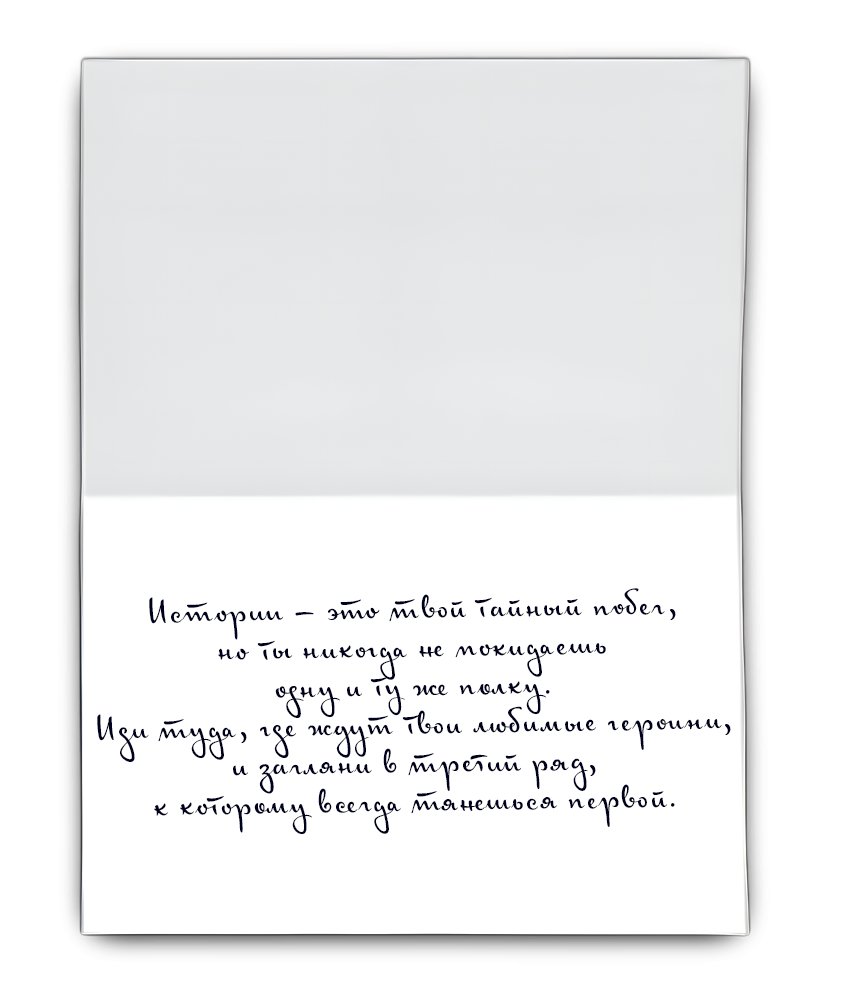 Истории – это твой тайный побег,
но ты никогда не покидаешь
одну и ту же полку.
Иди туда, где ждут твои любимые героини,
и загляни в третий ряд,
к которому всегда тянешься первой.